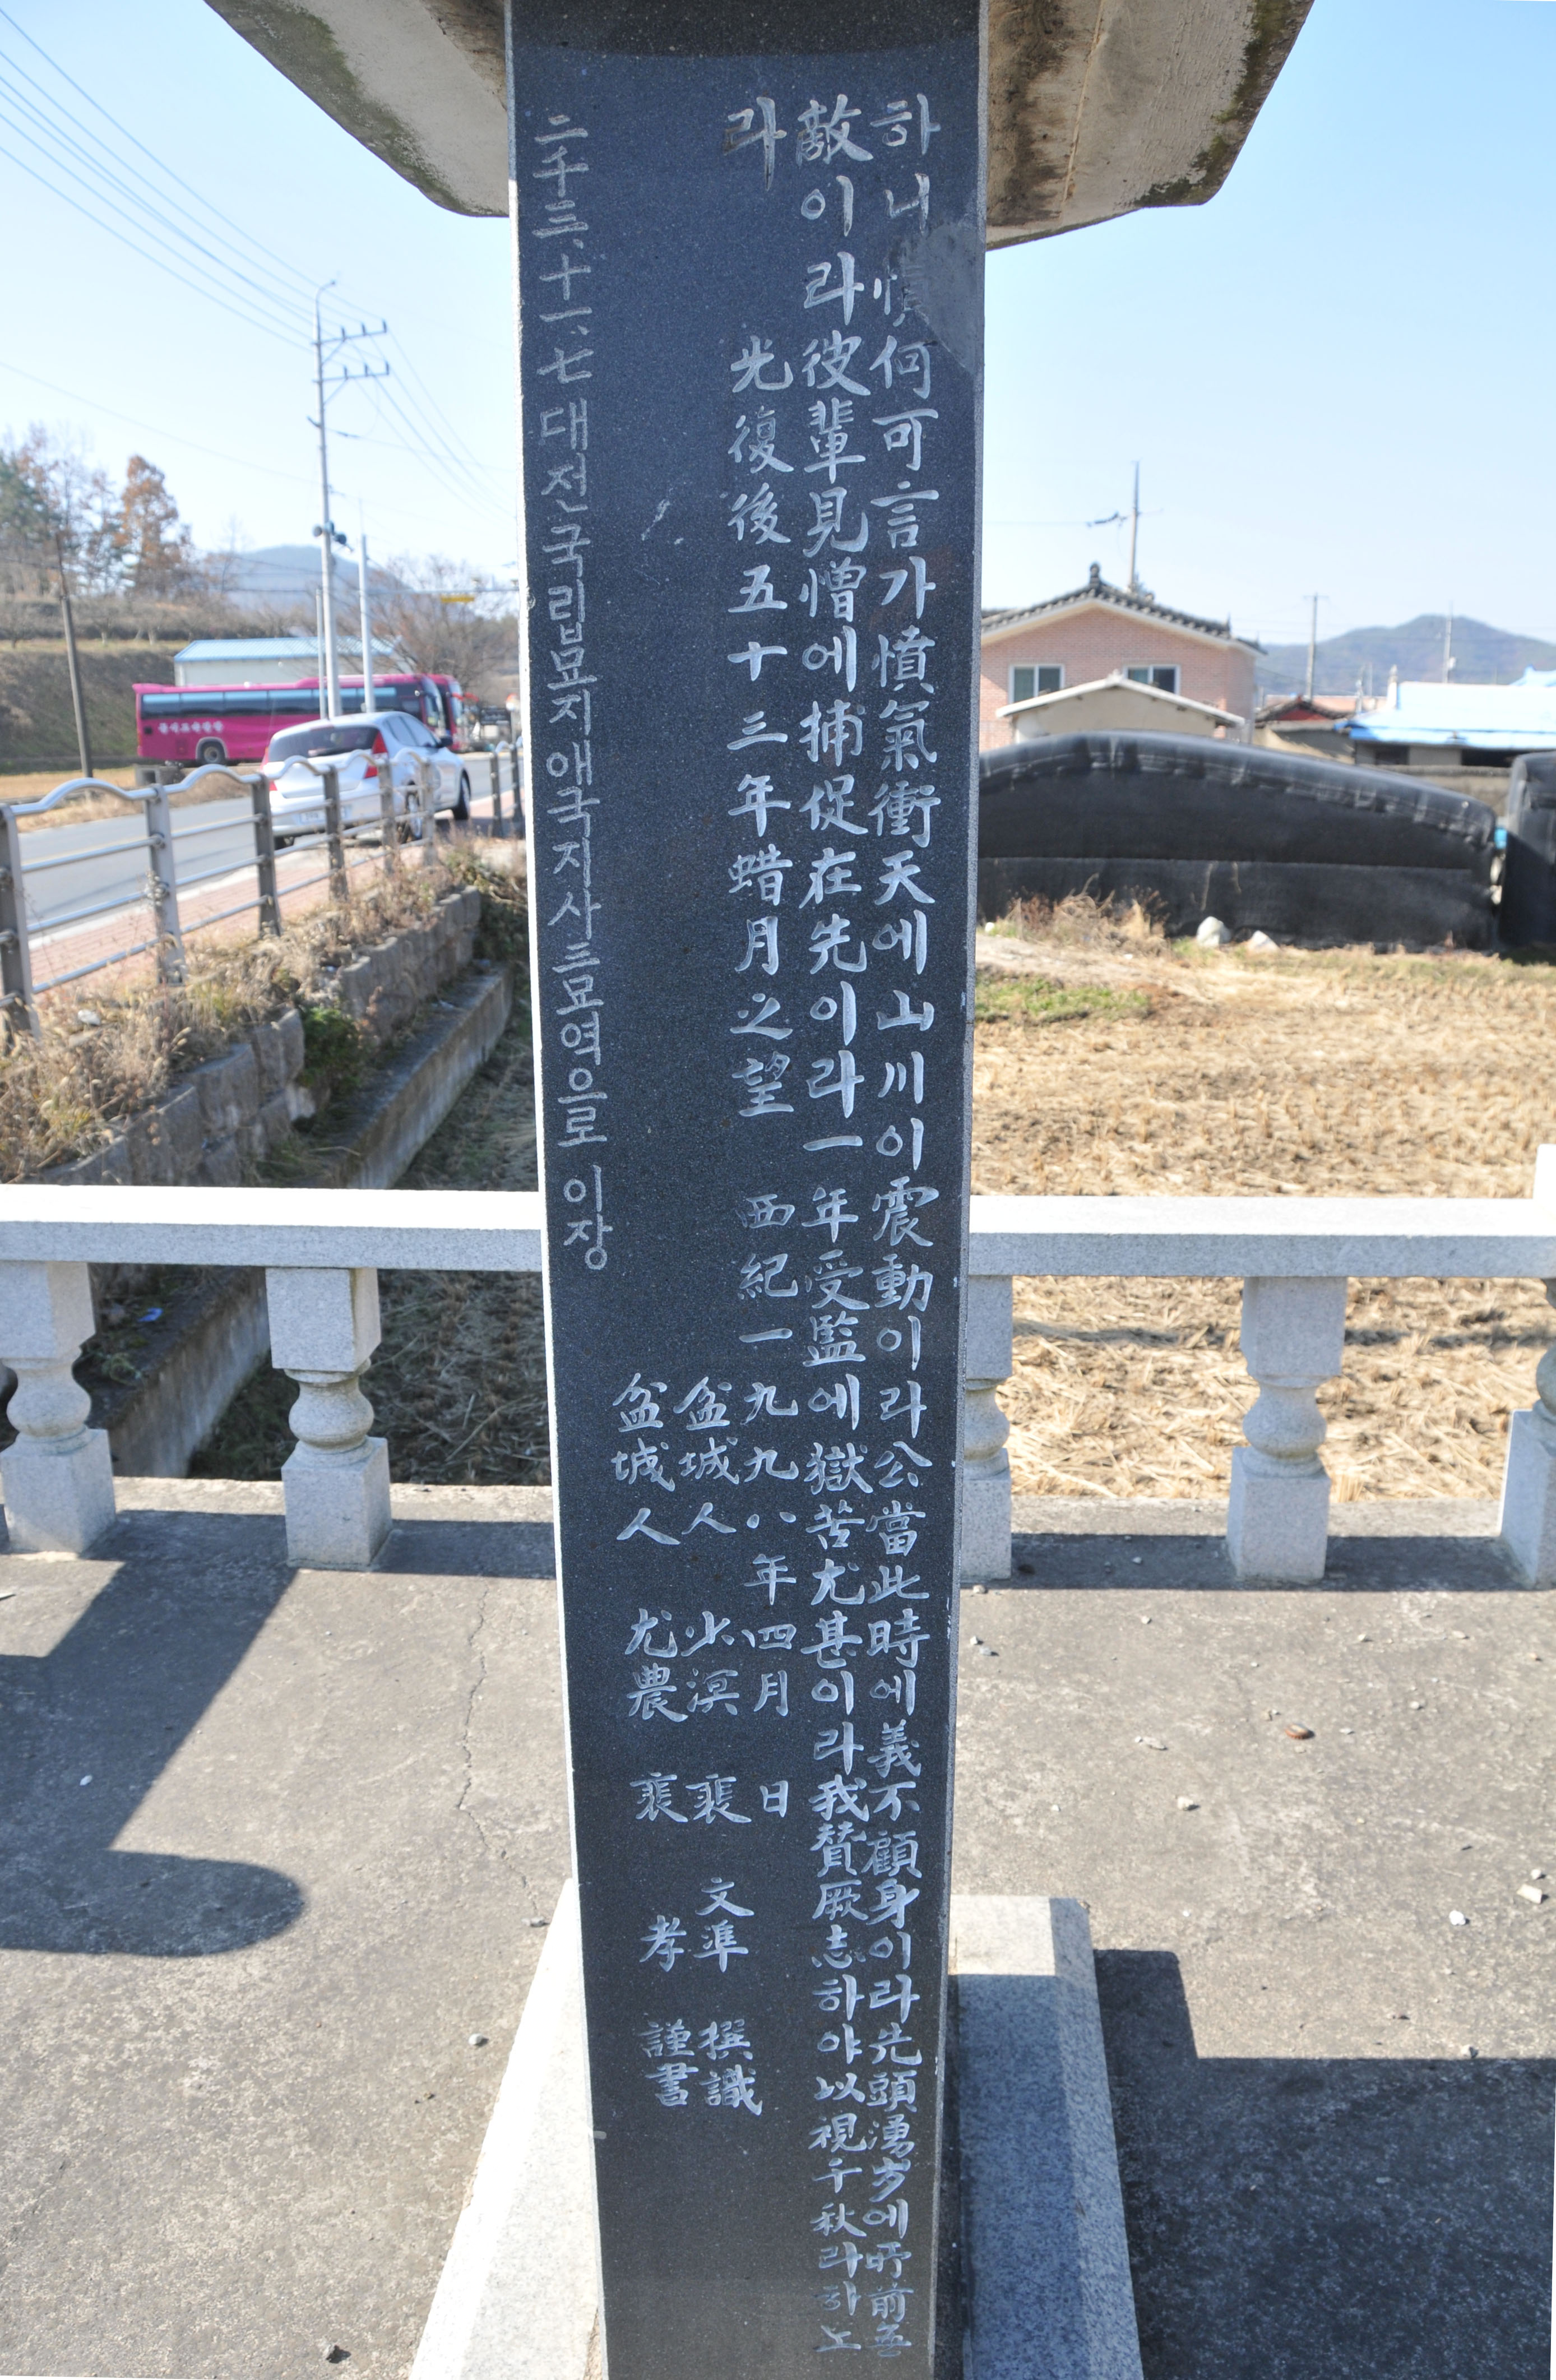 하니 憤何可言가 憤氣衝天에 山川이 震動이라 公當此時에 義不顧身이라 先頭湧步에 所前無
敵이라 彼輩見憎에 捕促在先이라 一年受監에 獄苦尤甚이라 我贊厥志하야 以視千秋라 하노
라
光復後五十三年蜡月之望 西紀一九九八年四月 日
盆城人 少溟 裵 文準 撰識
盆城人 尤農 裵 孝 謹書
二千三、十一、七 대전국립묘지애국지사三묘역으로 이장